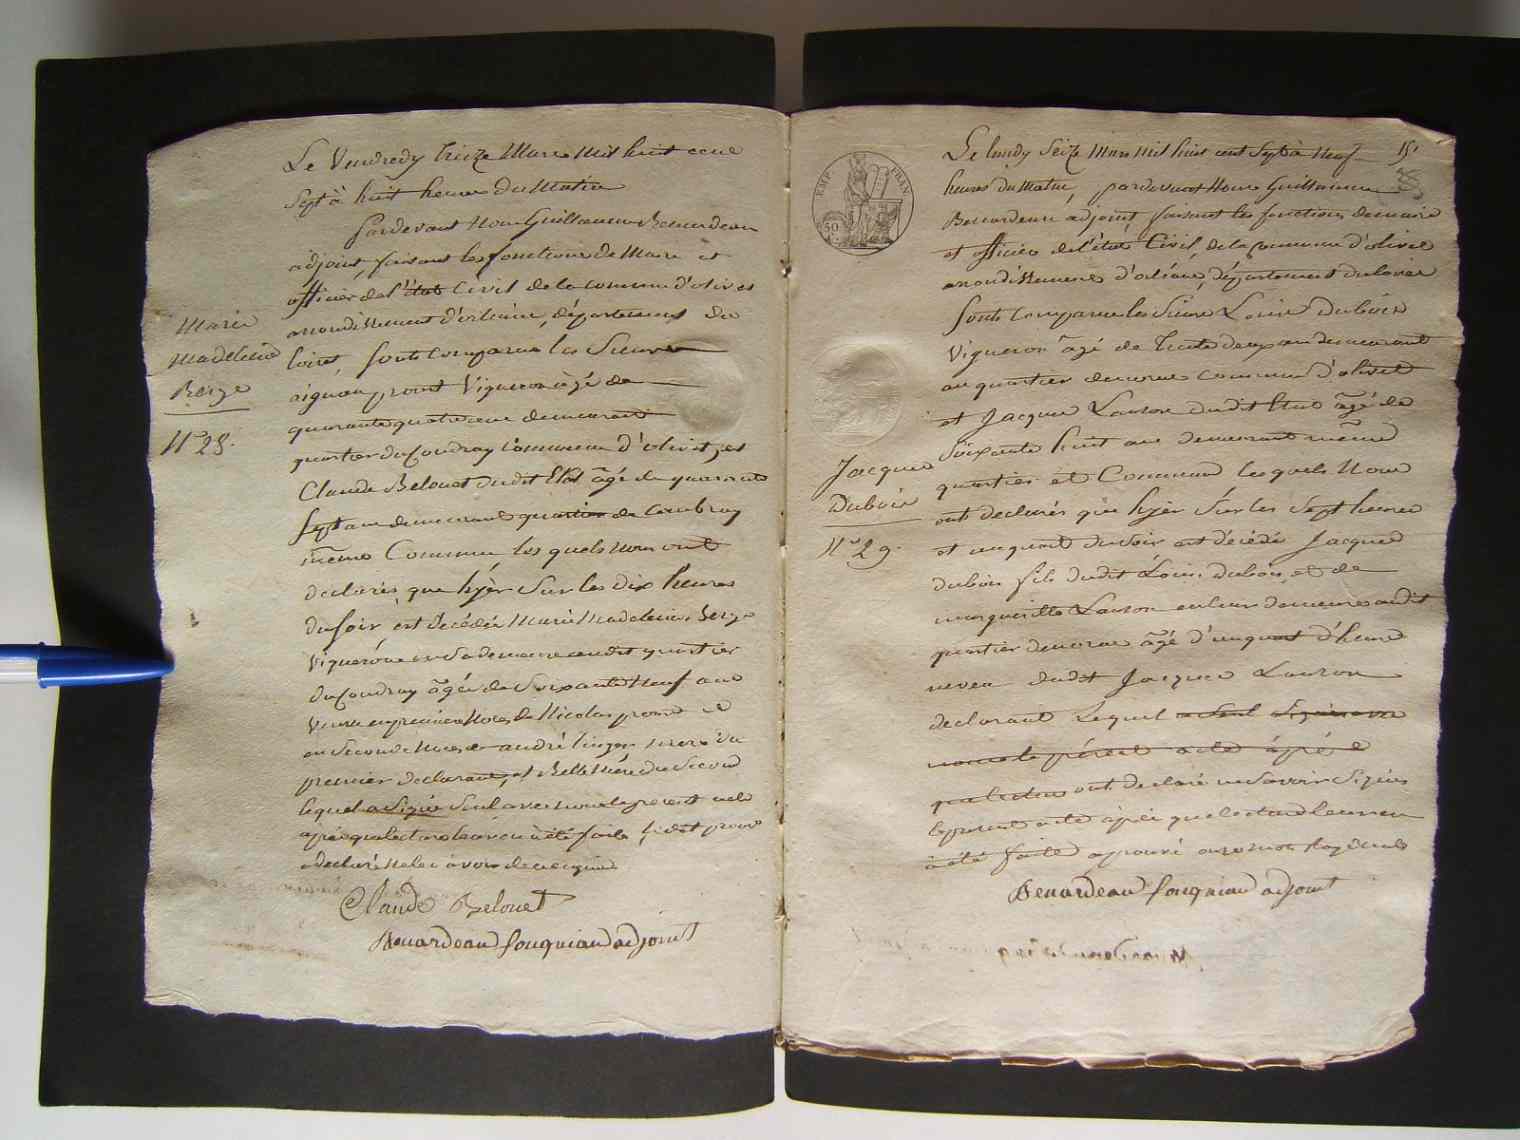 Le Vendredy treize Mars mil huit cent
Sept à huit heures du Matin
Pardevant Nous Guillaume Benardeau
adjoint, faisant les fonctions de Maire et
officier de l'état Civil de la commune d'olivet
arrondissement d'orléans, département du
loiret, sont comparus les Sieurs
aignan prout Vigneron âgé de
quarante quatre ans demeurant
quartier du Coudray Commune d'olivet, et
Claude Belouet dudit Etat âgé de quarante
Sept ans demeurant quartier du Coudray
même Commune lesquels nous ont
declarés que hyèr Sur les dix heures
du Soir est décédée Marie Madeleine Berge
Vigneronne en Sa demeure audit quartier
du Coudray âgée de Soixante Neuf ans
Veuve en premiere Noces de Nicolas prout et
en Seconde Noces de andré mere du
premier declarant, et Belle Mere du Second
lequel a Signé Seul avec nous le present acte
après que lecture leur en a été faite ledit prout
a declaré ne le Savoir de ce enquis
Claude Belouet
Benardeau fouqniau adjoint
Marie
Madeleine
Berge
N° 28.
EMP. FRAN.
50
Le lundy Seize Mars mil huit cent Sept à Neuf
heures du Matin, pardevant Nous Guillaume
Benardeau adjoint, faisant les fonctions de maire
et officier de l'état Civil, de la Commune d'olivet
arrondissement d'orléans, département du loiret
Sont Comparus les Sieurs Louis Dubois
Vigneron âgé de trente deux ans demeurant
au quartier de commune d'olivet
et Jacques Lauron dudit Etat âgé de
Soixante huit ans demeurant même
quartier et Commune lesquels Nous
ont declarés que hyèr Sur les Sept heures
et un quart du Soir est décédé Jacques
dubois fils dudit Louis dubois et de
marguerille Lauron en leur demeure audit
quartier de âgé d'un quart d'heure
neveu dudit Jacques Lauron
declarant Lequel a Seul Signé avec
nous le présent acte après
que lecture ont declaré ne Savoir Signer
le present acte après que lecture leur en
a été faite approuvé
Benardeau fouqniau adjoint
15
Jacques
Dubois
N° 29.